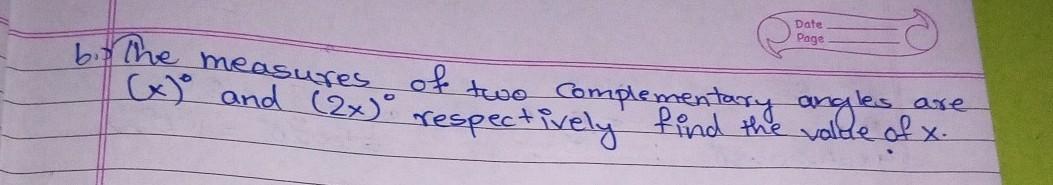 Date
Page
b.) The measures of two complementary angles are
(x)° and (2x)° respectively find the value of x.